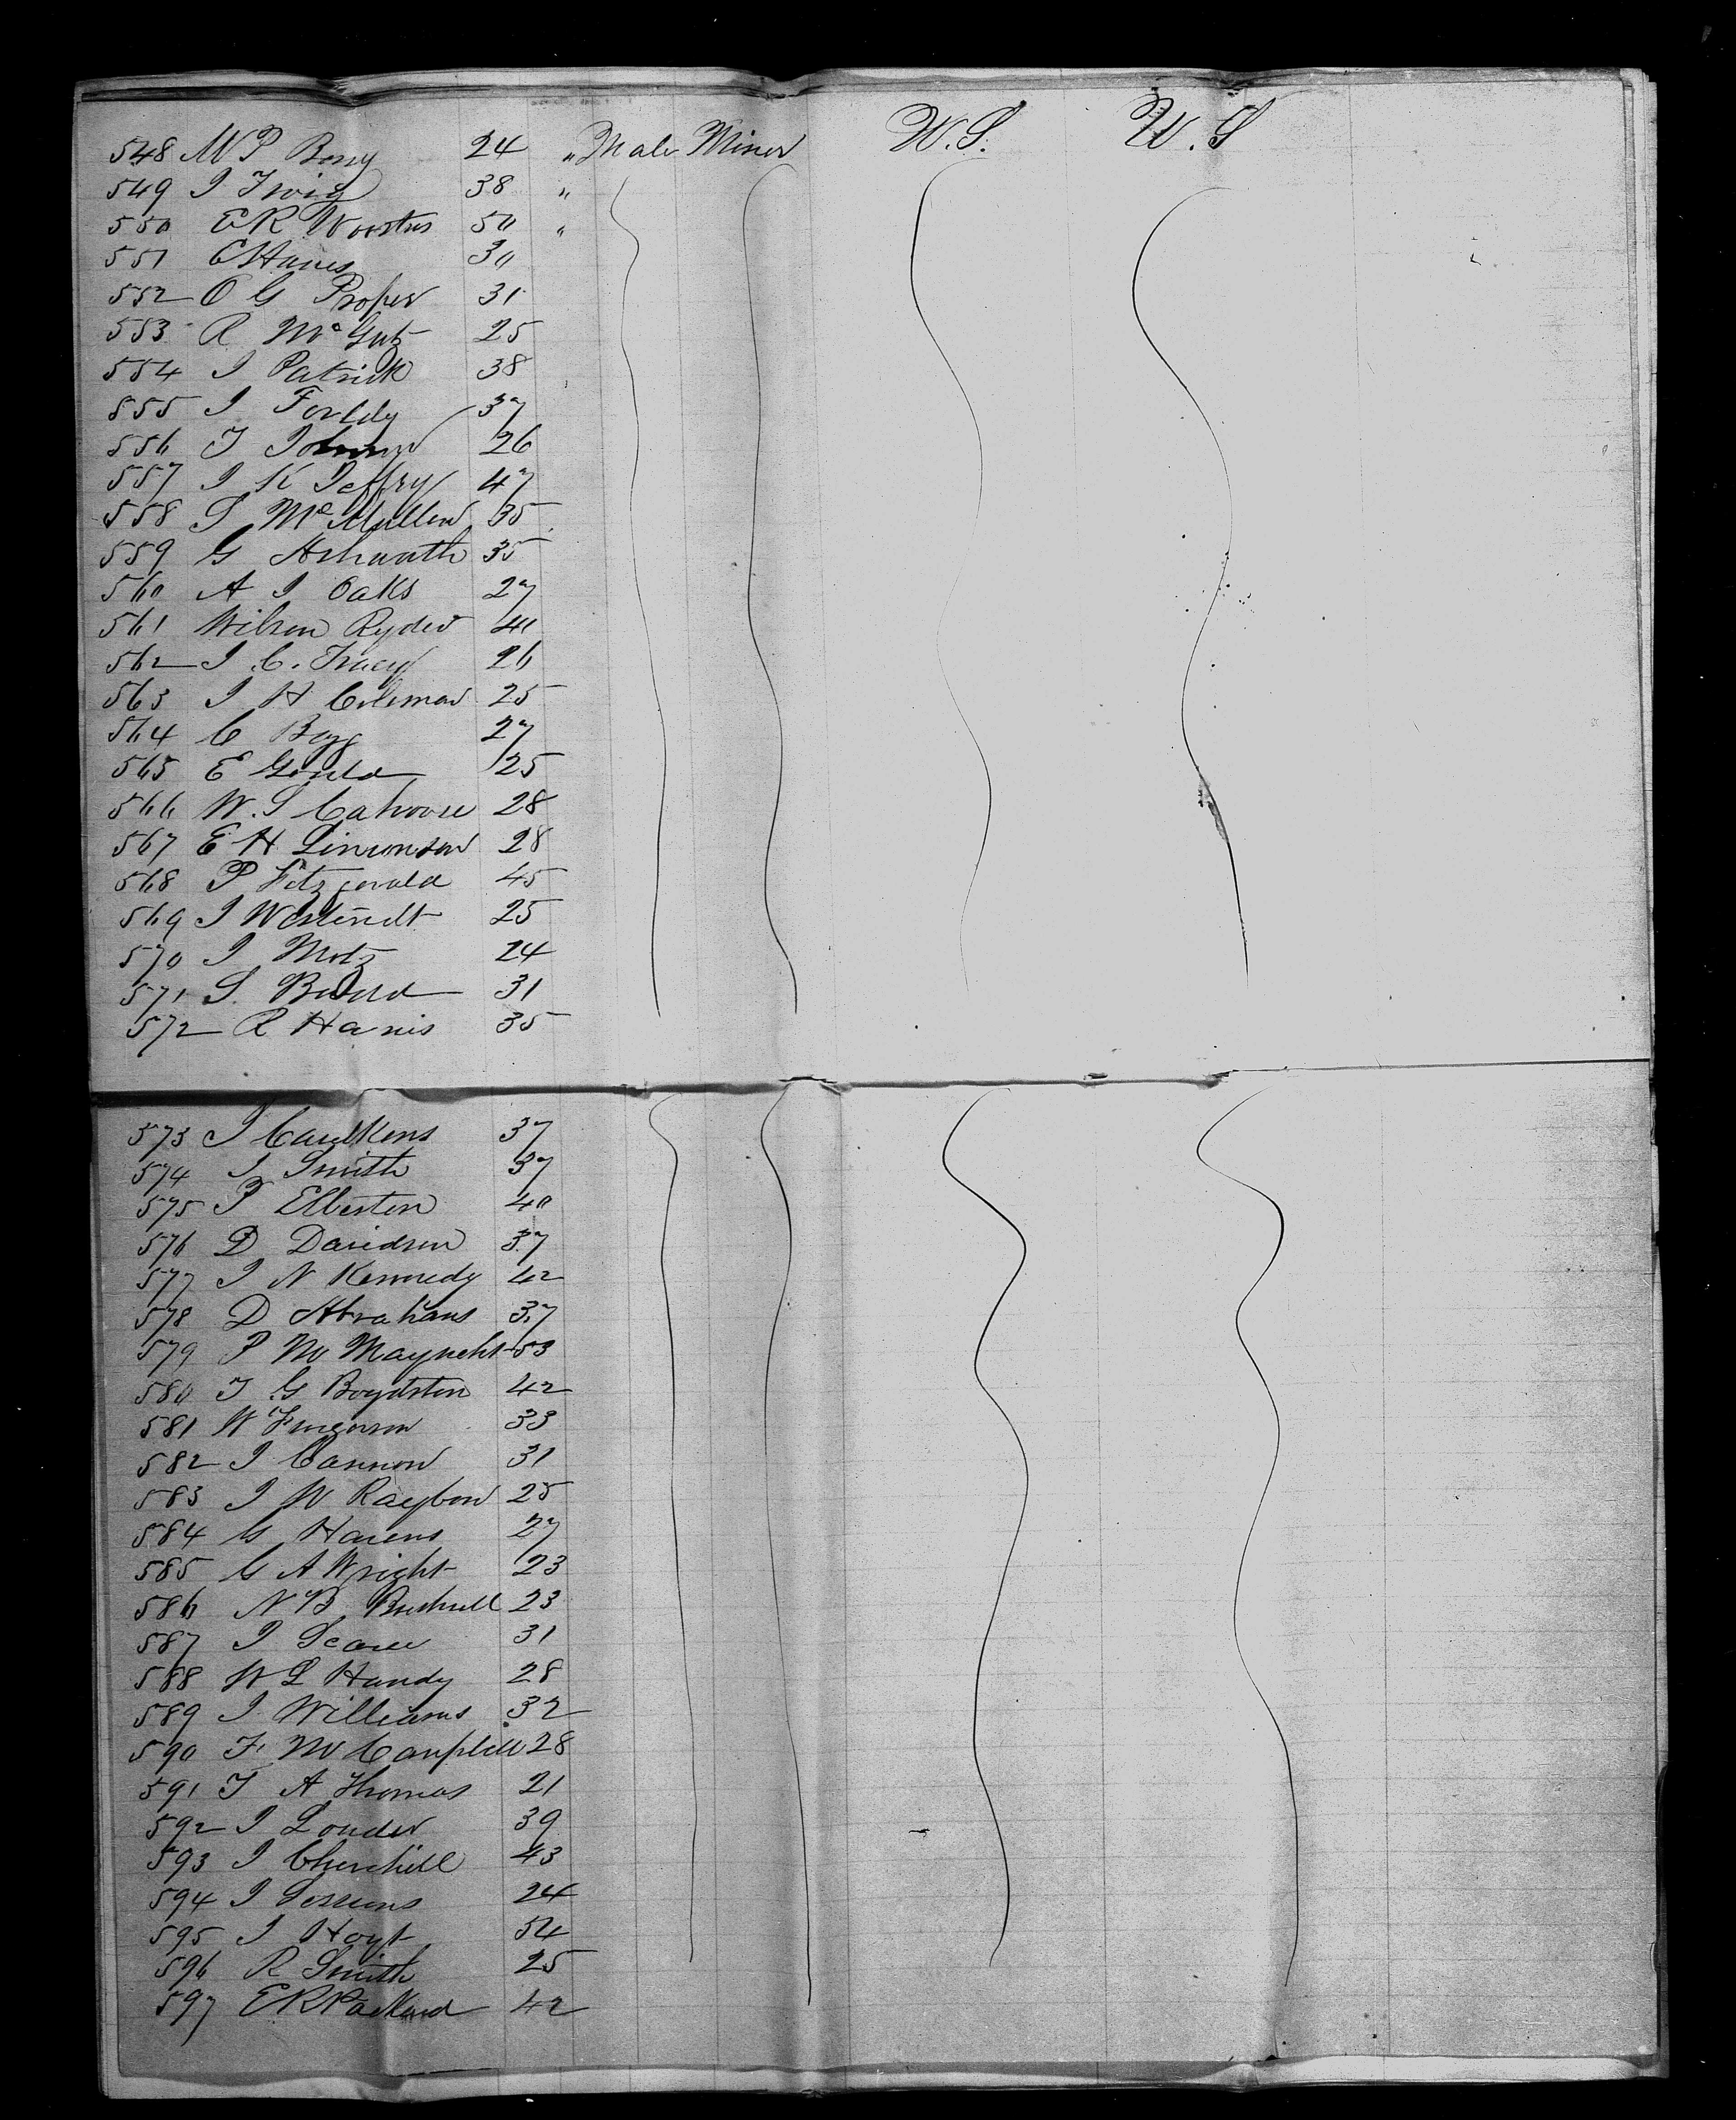 548 M P Berry 24 " Male Miner W.S. W.S
549 J Twig 38 "
550 E R Woosters 50 "
551 E Hanes 30
552 O G Proper 31
553 R Mc 25
554 J Patrick 38
555 J 37
556 T 26
557 J K Jeffry 47
558 S Mc Mullen 35
559 G Ashwath 35
560 A J Oaks 27
561 Wilson Ryder 40
562 J C. Tracy 26
563 J H Coleman 25
564 C Bogg 27
565 E Gould 25
566 W. S Cahoone 28
567 E H Linconson 28
568 P Fitzgerald 45
569 J Westendt 25
570 J Motz 24
571 S. 31
572 R Harris 35
573 J Caulkens 37
574 J Smith 37
575 T Elberton 40
576 D Davidson 37
577 J N Kennedy 42
578 D Abrahams 37
579 P M 53
580 T G Boydston 42
581 W Furgerson 33
582 J Cannon 31
583 J W Raybon 25
584 G Havens 27
585 G A Wright 23
586 N B Bushnell 23
587 J 31
588 W L Handy 28
589 J Williams 32
590 F M Campbell 28
591 T A Thomas 21
592 J Louder 39
593 J Churchill 43
594 J 24
595 J Hoyt 54
596 R Smith 25
597 E R Packard 42